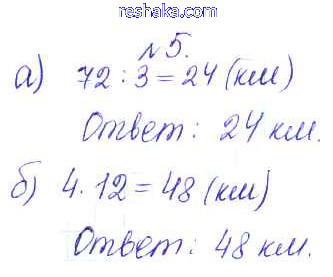 reshaka.com
№5.
а) 72 : 3 = 24 (км)
Ответ: 24 км.
б) 4 · 12 = 48 (км)
Ответ: 48 км.